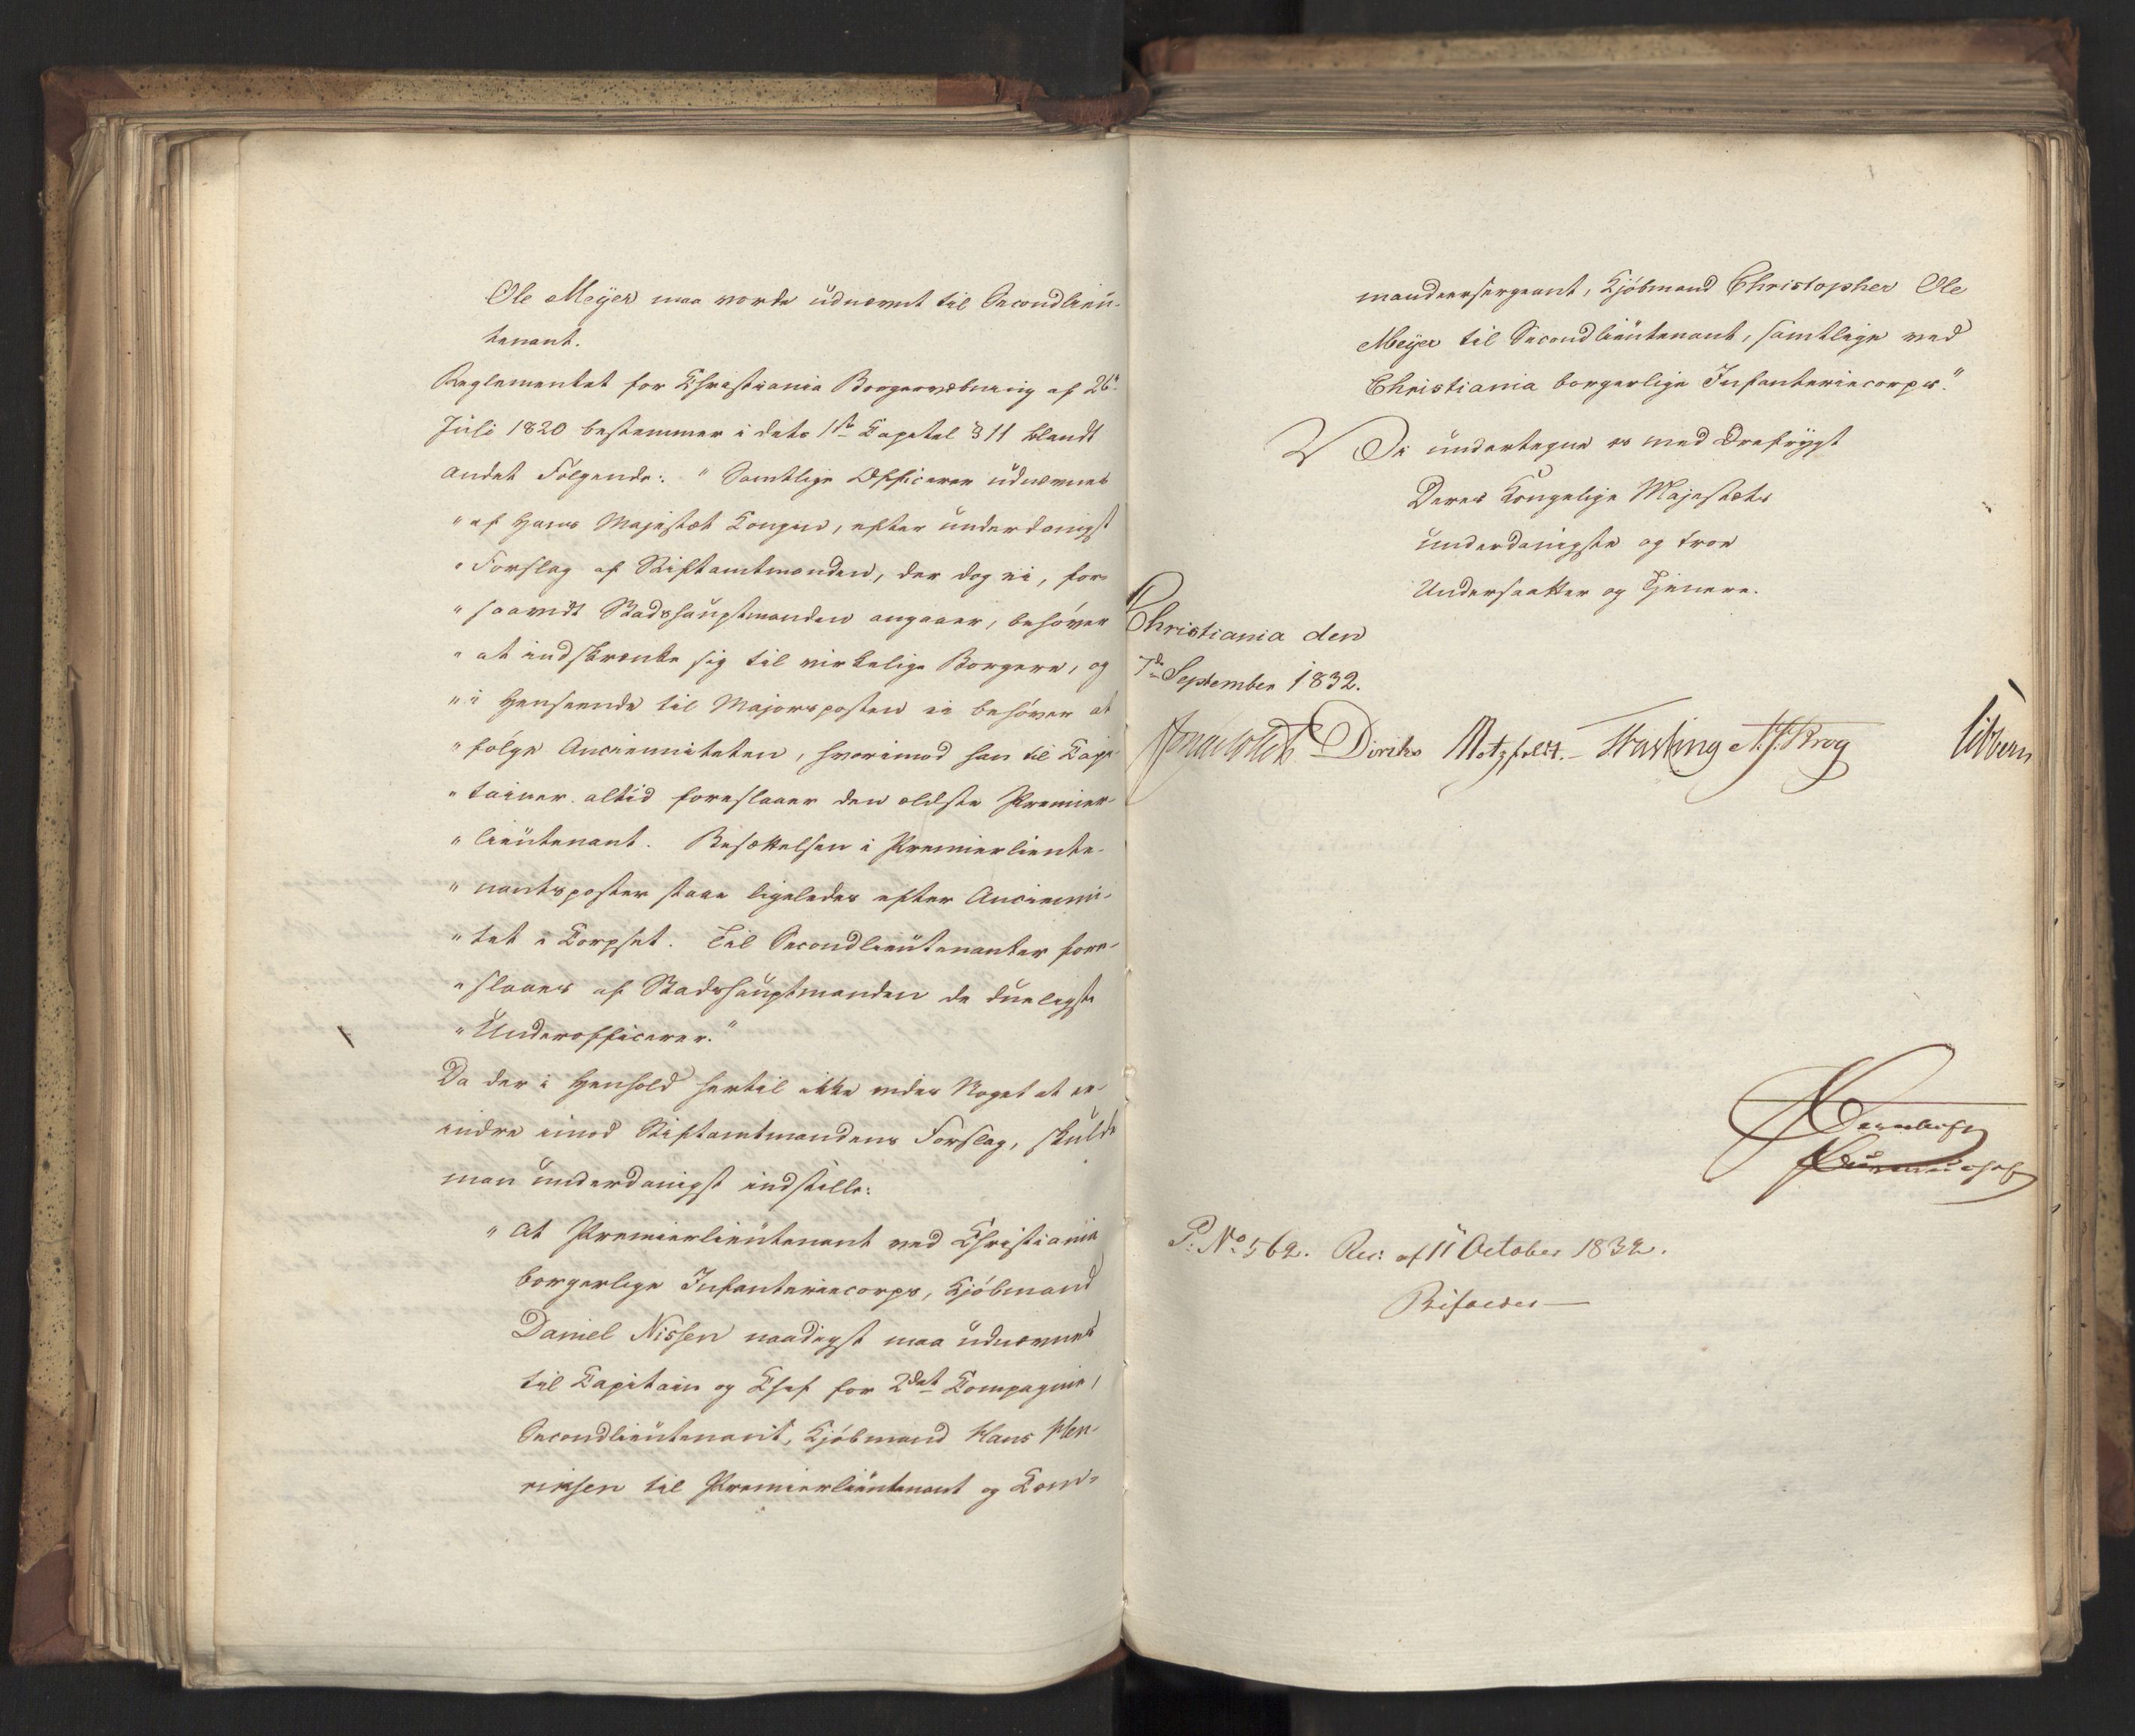 Ole Meyer maa vorde udnævnt til Secondlieu-
tenant.
Reglementet for Christiania Borgervæbning af 26.
Juli 1820 bestemmer i dets 1ste Capitel § 11 blandt
andet Følgende: "Samtlige Officerer udnævnes
"af Hans Majestæt Kongen, efter underdanigst
"Forslag af Stiftamtmanden, der dog ei, for-
"saavidt Stadshauptmanden angaaer, behøver
"at indskrænke sig til virkelige Borgere, og
"i Henseende til Majorsposten ei behøver at
"følge Ancienniteten, hvorimod han til Capi-
"tainer altid foreslaaer den ældste Premier-
"lieutenant. Besættelsen i Premierlieute-
"nantsposter skeer ligeledes efter Ancienni-
"tet i Corpset. Til Secondlieutenanter fore-
"slaaes af Stadshauptmanden de dueligste
"Underofficerer."
Da der i Henhold hertil ikke vides Noget at er-
indre imod Stiftamtmandens Forslag, skulde
man underdanigst indstille:
"At Premierlieutenant ved Christiania
borgerlige Infanteriecorps, Kjøbmand
Daniel Nissen naadigst maa udnævnes
til Capitain og Chef for 2det Compagnie,
Secondlieutenant, Kjøbmand Hans Hen-
riksen til Premierlieutenant og Com-
mandeersergeant, Kjøbmand Christopher Ole
Meyer til Secondlieutenant, samtlige ved
Christiania borgerlige Infanteriecorps."
Vi undertegne os med Ærefrygt
Deres Kongelige Majestæts
underdanigste og troe
Undersaatter og Tjenere.
Christiania den
7de September 1832.
Collett Diriks Motzfeldt. Fasting A. J. Krog
Sibbern
P: No 562. Res: af 11 October 1832.
Bifaldes